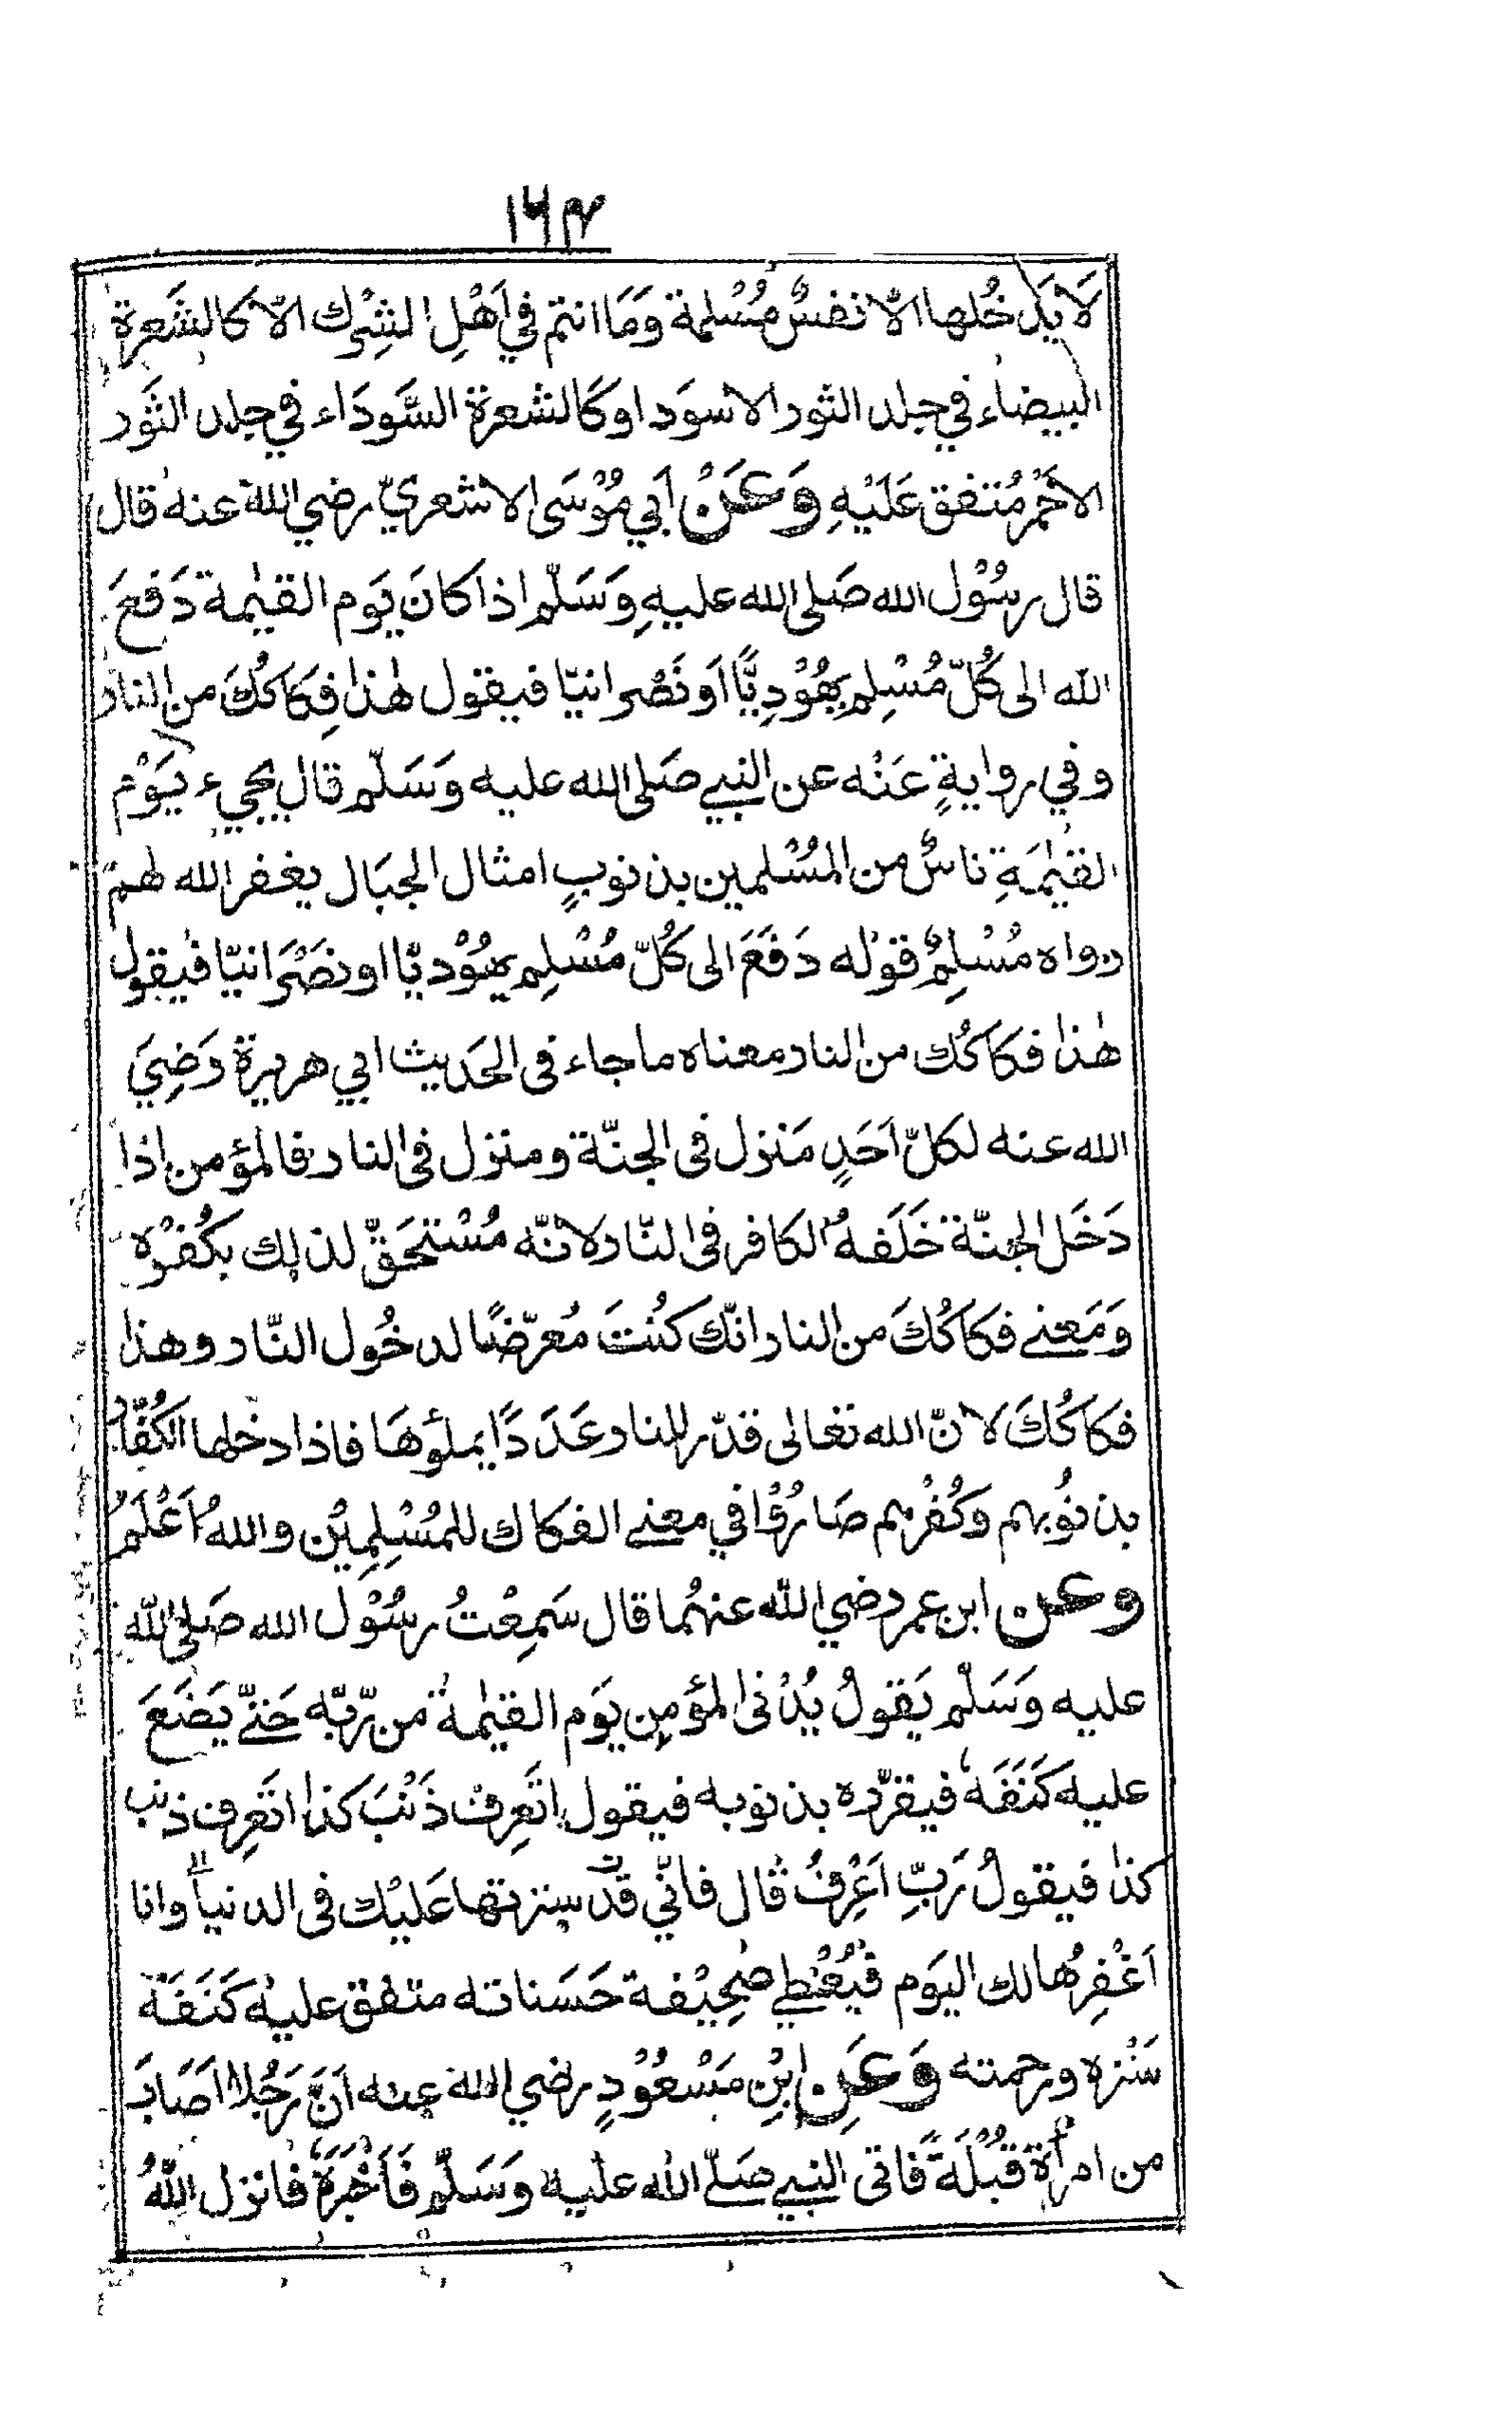 ۱۶۴
لَا يَدْخُلها الّا نفسٌ مُسْلمة وَمَا انتم في اَهْلِ الشِرْك الّا كالشَعرة
البيضاء في جلد الثور الاسوَد او كَالشعرة السَّودَاء في جلد الثَور
الاحْمرِ مُتفق عَلَيْهِ وَعَنْ اَبي مُوْسَى الاشعريّ رضي الله عنه قال
قال رسُوْل الله صَلى الله عليهِ وَسَلّم اذا كانَ يَوم القيٰمة دَفعَ
الله الى كُلّ مُسْلِم يهُوْدِيًّا اَو نَصْرانيّا فيقول هٰذا فِكَاكُكَ من النار
وفي روايةٍ عَنْه عن النبي صَلى الله عليه وَسَلّم قال يجيء يَوْم
القيٰمَةِ ناسٌ من المُسْلمين بذنوبٍ امثال الجبَال يغفر الله لهم
رواه مُسْلِمٌ قوله دَفَعَ الى كُلّ مُسْلِم يهُوْديّا او نصْرَانيّا فيقول
هٰذا فكاكُك من النار معناه ما جاء فى الحَديث ابي هريرة رَضِيَ
الله عنه لكلّ اَحَدٍ مَنزل فى الجنّة ومنزل فى النار فالمؤمن اذا
دَخَل الجنّة خَلَفهُ الكافر فى النّار لانّه مُسْتحَقٌّ لذلك بكُفْره
وَمَعنى فكاكُكَ من النار انّك كنُتَ مُعرّضًا لدخُول النّار وهذا
فكاكُكَ لانّ الله تعالى قدّر للنار عَدَدًا يملؤهَا فاذا دخلها الكُفّار
بذنُوبهم وَكُفْرِهم صَارُوْا في معنى الفكاك للمُسْلِمِيْن واللهُ اَعْلَمُ
وعن ابن عمر رضي الله عنهُما قال سَمِعْتُ رسُوْل الله صَلى الله
عليه وَسَلّم يَقولُ يُدْنى المؤمِن يَوم القيٰمة من رّبّه حَتّى يَضَعَ
عليه كَنَفَهُ فيقرّره بذنوبه فيقول اتَعرِفُ ذَنْبَ كذا اتَعرِف ذنب
كذا فيقولُ رَبِّ اَعْرِفُ قال فانّي قدْ سترتها عَليْك فى الدنيا وانا
اَغْفِرُها لك اليَوم فيُعْطى صَحِيْفة حَسَناته متفق عليه كَنَفَهُ
سَتْره ورحمته وَعَنِ ابْنِ مَسْعُوْدٍ رضي الله عنه اَنّ رَجُلا اَصَابَ
من امرأة قُبْلَةً فاتى النبي صَلّى الله عليه وَسَلّم فَاَخْبَرَهُ فانزل اللّٰهُ